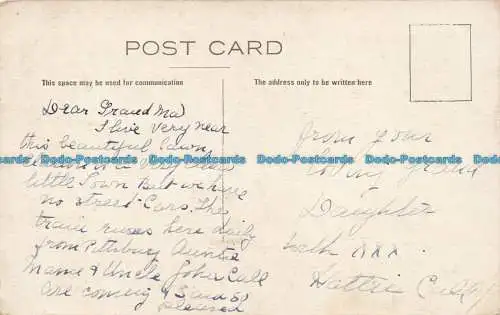 POST CARD
This space may be used for communication
The address only to be written here
Dear Grand Ma
I live very near
this beautiful lawn
little Town But we have
no street-Cars. The
train runs here daily
from Pittsburg Aunt
Mame & Uncle John Call
are coming &
pleased
From your
Grand
Daughter
with xxx.
Hattie Call
Bodo-Postcards Bodo-Postcards Bodo-Postcards Bodo-Postcards